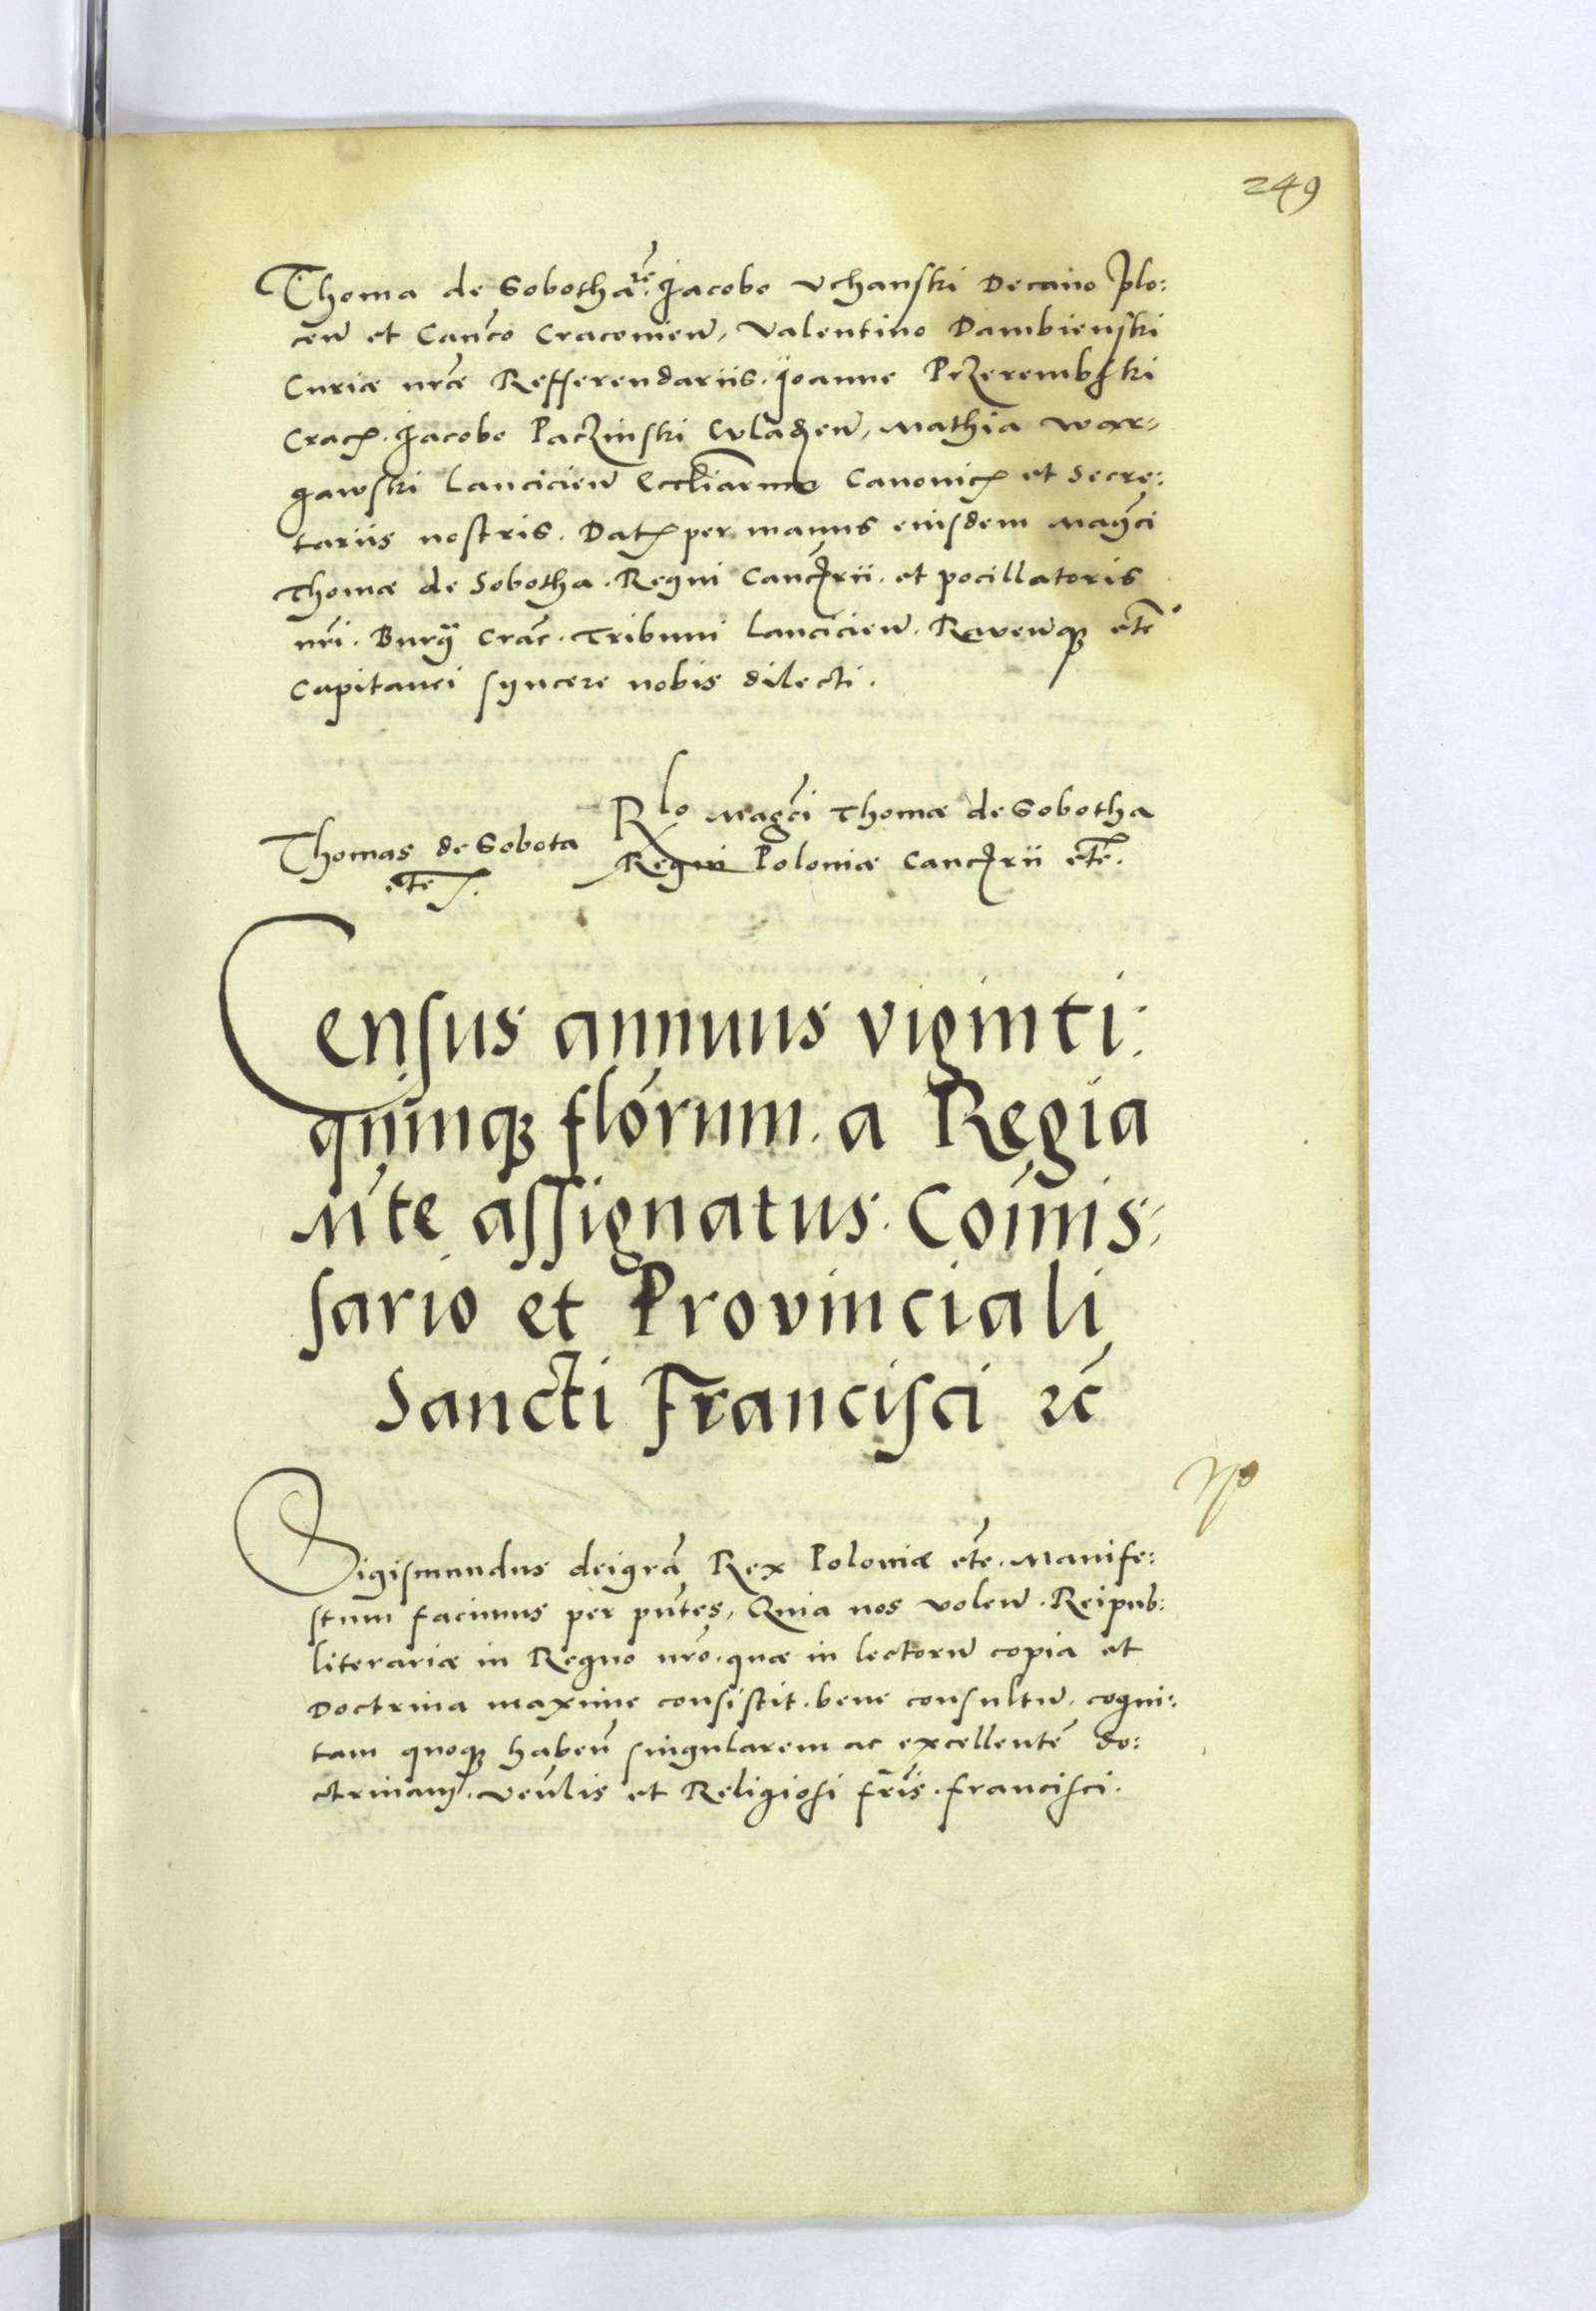 249
Thoma de Sobotha. Jacobo Vchanski Decano Plo:
ceñ et Canco Cracovieñ, Valentino Dambienski
Curiæ nræ Refferendariis. Joanne Przerembski
Crac. Jacobo Paczinski Wladeñ, Mathia War-
gawski Lancicieñ Eccliarum Canonic et Secre:
tariis nostris. Dat per manus eiusdem Magci
Thomæ de Sobotha. Regni Canc̃rii. et pocillatoris
nri. Burgi Crac. Tribuni Lancicieñ. Raveñq etc
Capitanei syncere nobis dilecti.
Rlo Magci Thomæ de Sobotha
Thomas de Sobota
Regni Poloniæ Canc̃rii etc.
etc
Census annuus viginti:
quinq florum. a Regia
Mte assignatus. Comis:
sario et Provinciali
Sancti Francisci etc
Sigismundus dei gra Rex Poloniæ etc. Manife:
stum facimus per pntes, Quia nos voleñ. Reipub:
literariæ in Regno nro. quæ in lectorũ copia et
doctrina maxime consistit. bene consultũ. cogni:
tam quoq habeñ singularem ac excellentẽ do:
ctrinam. veñlis et Religiosi fris. Francisci.